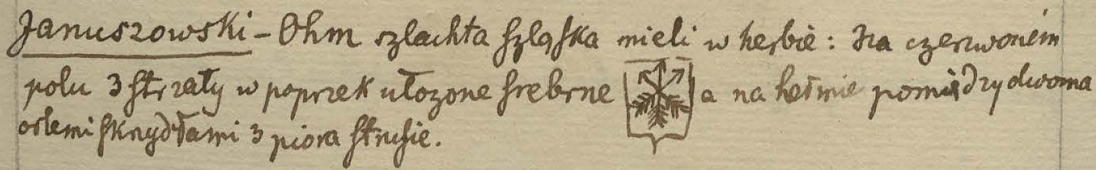 Januszowski – Ohm szlachta szląska mieli w herbie: Na czerwonem
polu 3 strzały w poprzek ułozone srebrne a na hełmie pomiędzy dwoma
orlemi skrzydłami 3 piora strusie.